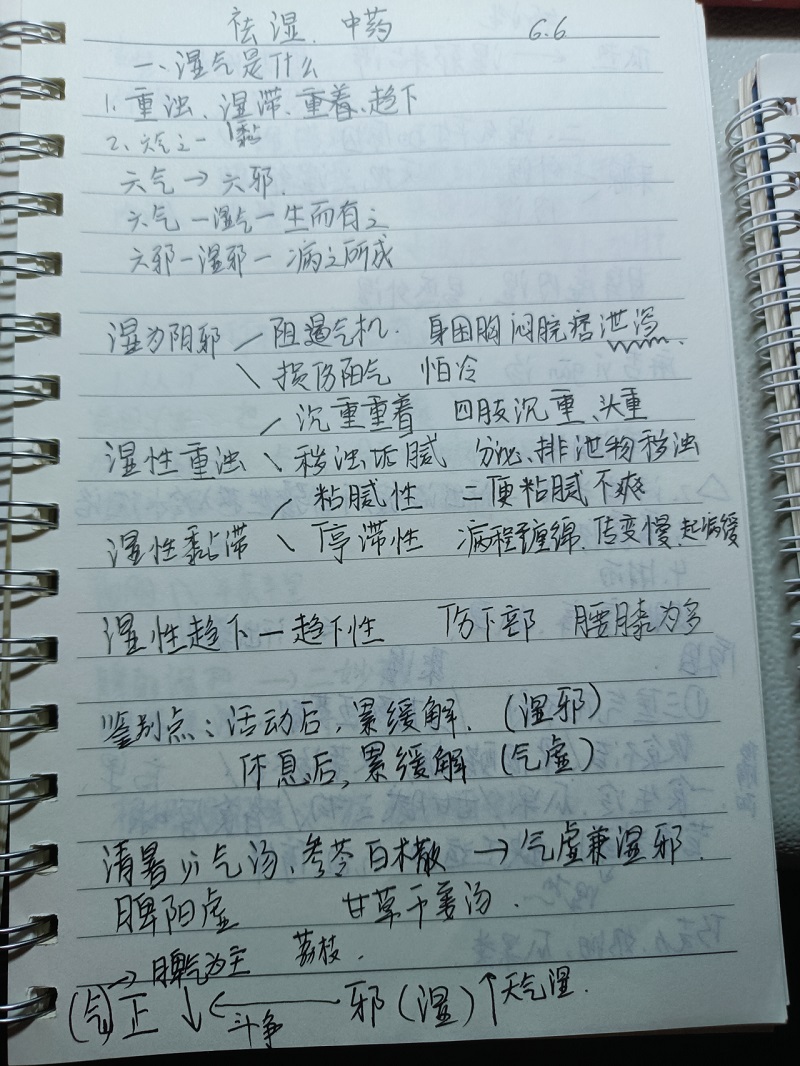 祛湿、中药 6.6
一、湿气是什么
1、重浊、湿滞、重着、趋下
黏
2、六气之一
六气→六邪.
六气一湿气一生而有之
六邪一湿邪一病之所成
湿为阴邪 阻遏气机. 身困胸闷脘痞泄泻.
损伤阳气 怕冷
沉重重着 四肢沉重、头重
湿性重浊 秽浊垢腻 分泌、排泄物秽浊
粘腻性 二便粘腻不爽
湿性黏滞 停滞性 病程缠绵、传变慢、起病缓
湿性趋下一趋下性 伤下部 腰膝为多
鉴别点：活动后，累缓解.（湿邪）
休息后，累缓解（气虚）
清暑yi气汤、参苓白术散→气虚兼湿邪.
脾阳虚 甘草干姜汤.
→脾气为主 荔枝.
(气)正↓←斗争 邪(湿)↑天气湿.